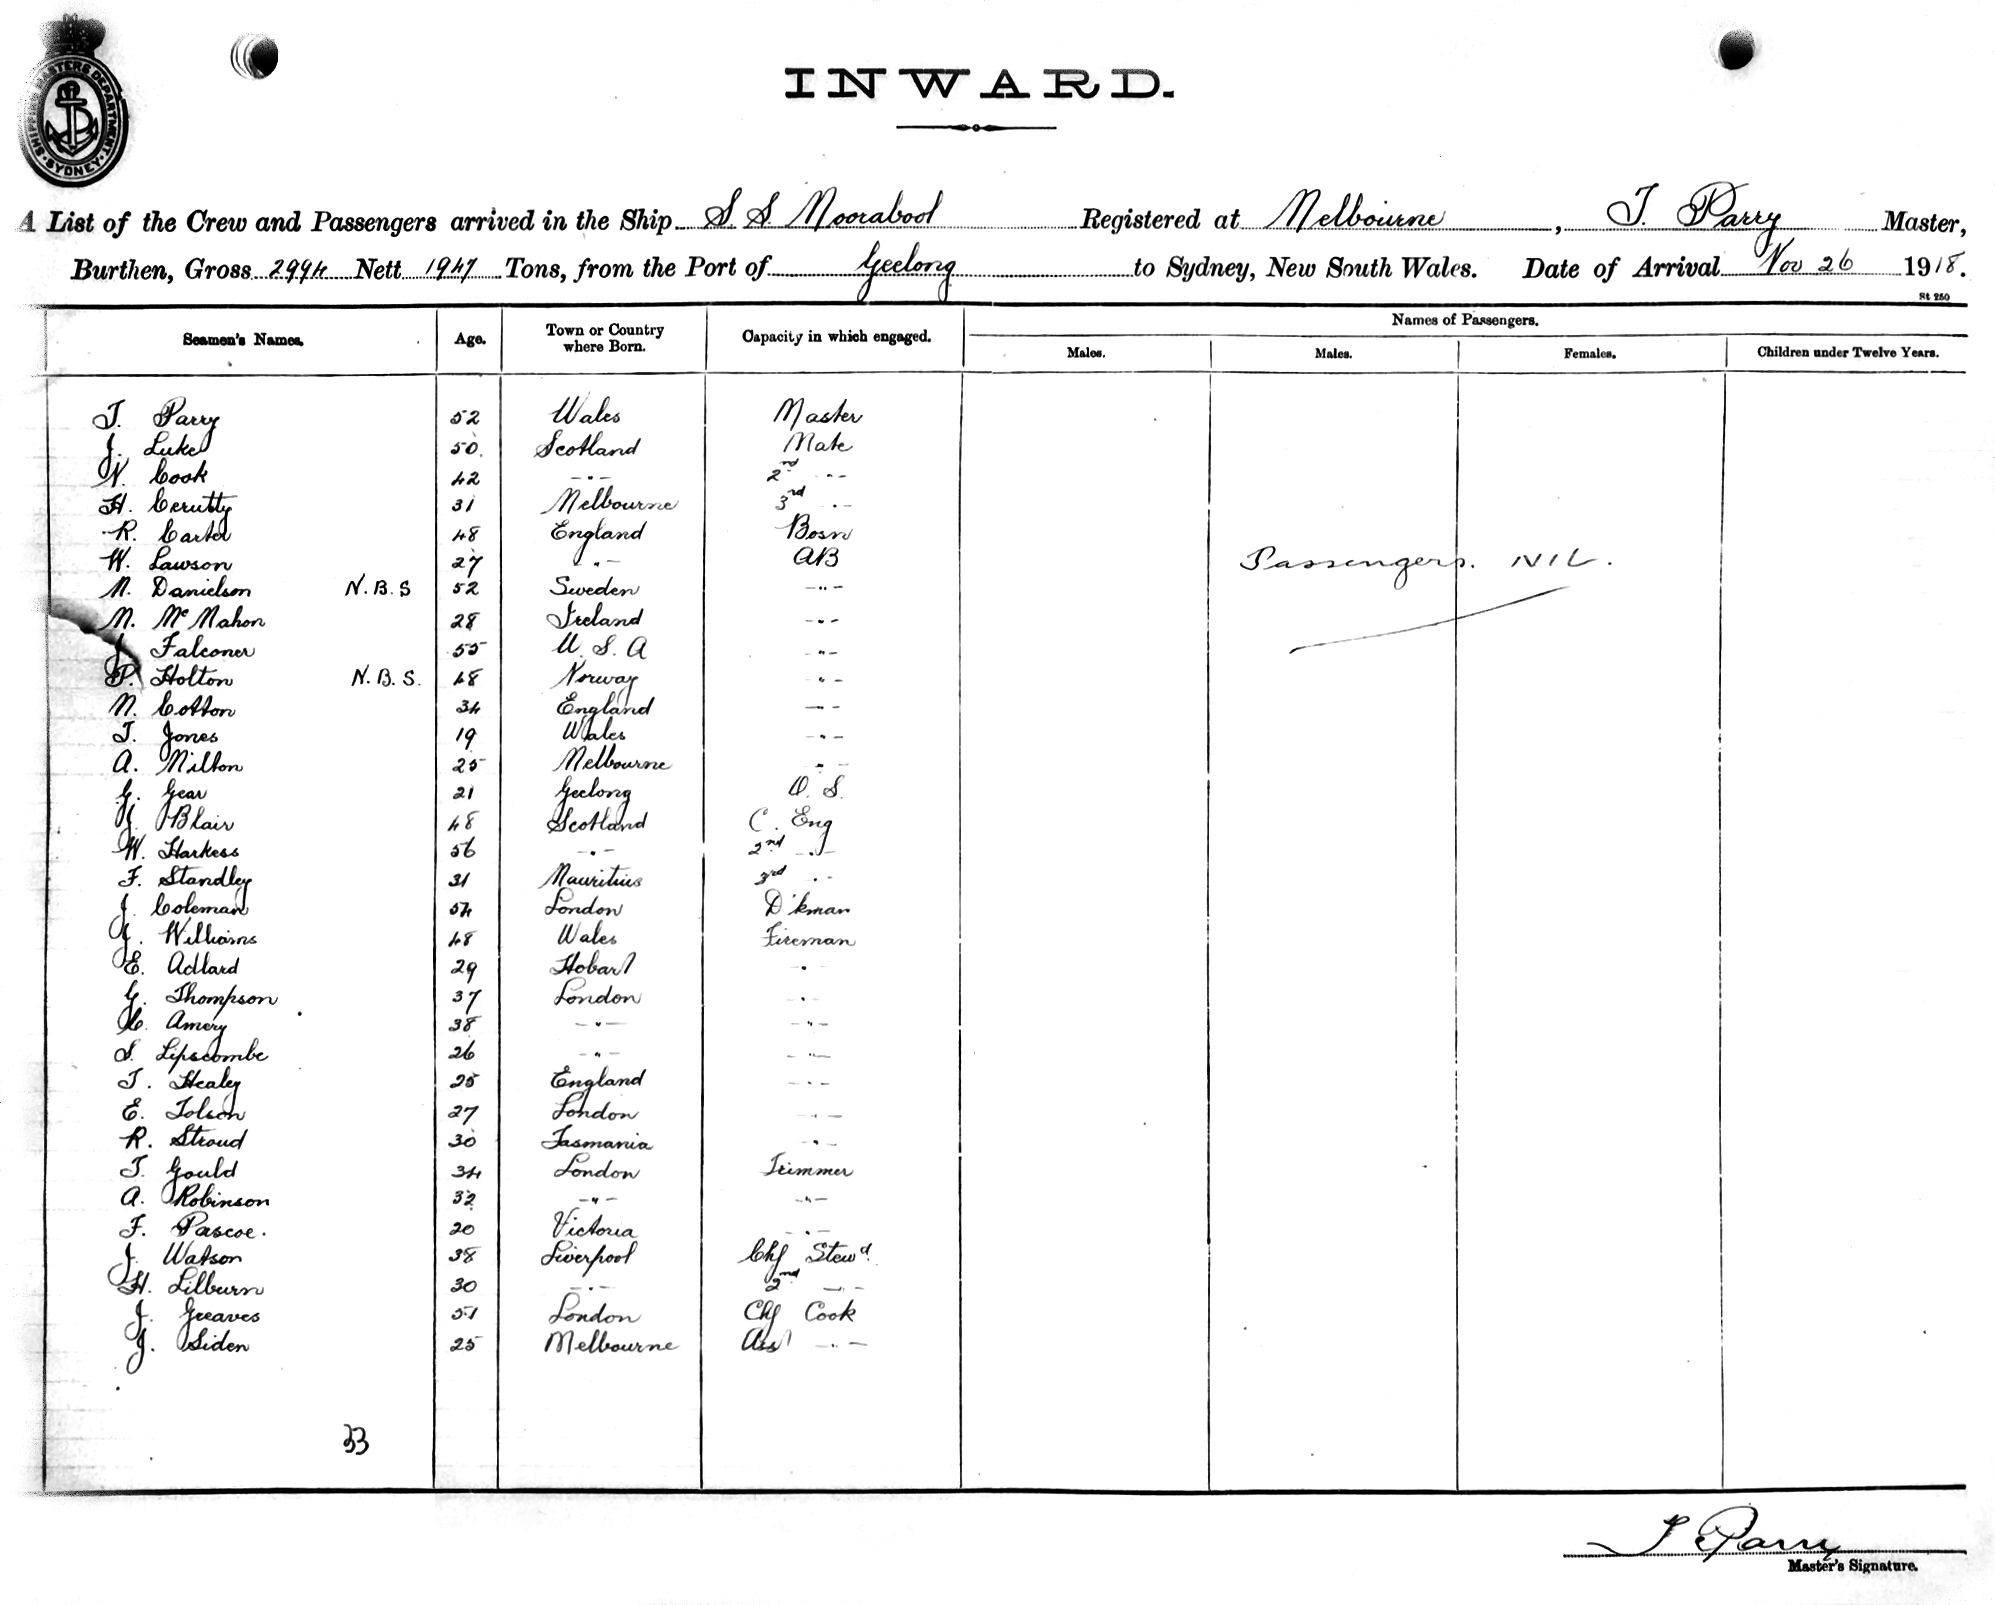 SHIPPING MASTERS DEPARTMENT · SYDNEY ·
INWARD.
A List of the Crew and Passengers arrived in the Ship S. S. Moorabool Registered at Melbourne, T. Parry Master,
Burthen, Gross 2994 Nett 1947 Tons, from the Port of Geelong to Sydney, New South Wales. Date of Arrival Nov 26 1918.
St 250
Seamen's Names. Age. Town or Country where Born. Capacity in which engaged. Names of Passengers.
Males. Males. Females. Children under Twelve Years.
T. Parry 52 Wales Master
J. Luke 50. Scotland Mate
N. Cook 42 -"- 2nd -"-
H. Cerutty 31 Melbourne 3rd -"-
R. Carter 48 England Bosn
W. Lawson 27 -"- AB
Passengers. NIL.
N. Danielson N.B.S 52 Sweden -"-
M. McMahon 28 Ireland -"-
J. Falconer 55 U.S.A -"-
P. Holton N.B.S. 48 Norway -"-
N. Cotton 34 England -"-
T. Jones 19 Wales -"-
A. Milton 25 Melbourne -"-
G. Gear 21 Geelong O. S.
J. Blair 48 Scotland C. Eng
W. Harkess 56 -"- 2nd -"-
F. Standley 31 Mauritius 3rd -"-
J. Coleman 54 London D'kman
J. Williams 48 Wales Fireman
E. Adlard 29 Hobart -"-
G. Thompson 37 London -"-
C. Amery 38 -"- -"-
S. Lipscombe 26 -"- -"-
T. Healey 25 England -"-
E. Tolson 27 London -"-
R. Stroud 30 Tasmania -"-
T. Gould 34 London Trimmer
A. Robinson 32 -"- -"-
F. Pascoe. 20 Victoria -"-
J. Watson 38 Liverpool Chf Stewd.
H. Lilburn 30 -"- 2nd -"-
J. Greaves 51 London Chf Cook
J. Siden 25 Melbourne Asst -"-
33
T Parry
Master's Signature.